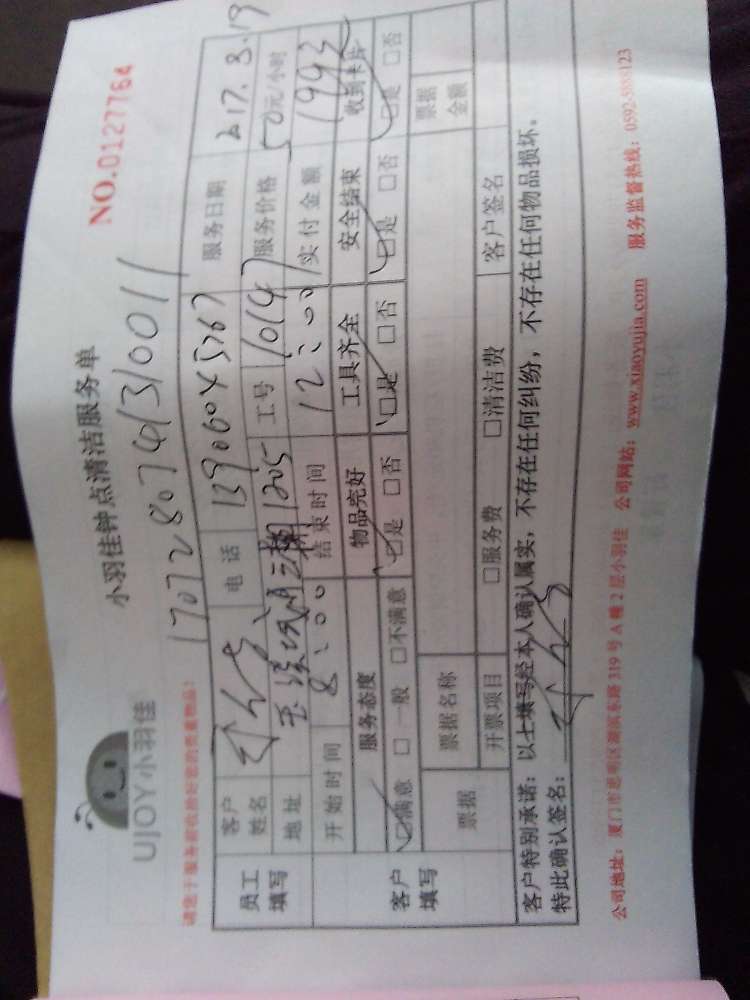 UJOY小羽佳
小羽佳钟点清洁服务单
NO.0127764
170728074131 0011
员工填写
客户姓名
电话
服务日期 217.8.19
地址
1205
工号 1014
服务价格 50元/小时
开始时间 8:00
结束时间 12:00
实付金额
客户填写
服务态度 物品完好 工具齐全 安全结束 收到卡片
☑满意 □一般 □不满意 ☑是 □否 ☑是 □否 ☑是 □否 ☑是 □否
票据
票据名称
票据金额
开票项目 □服务费 □清洁费
客户签名
客户特别承诺：以上填写经本人确认属实，不存在任何纠纷，不存在任何物品损坏。
特此确认签名：
公司地址：厦门市思明区湖滨东路319号A幢2层小羽佳 公司网站：www.xiaoyujia.com 服务监督热线：0592-5888123